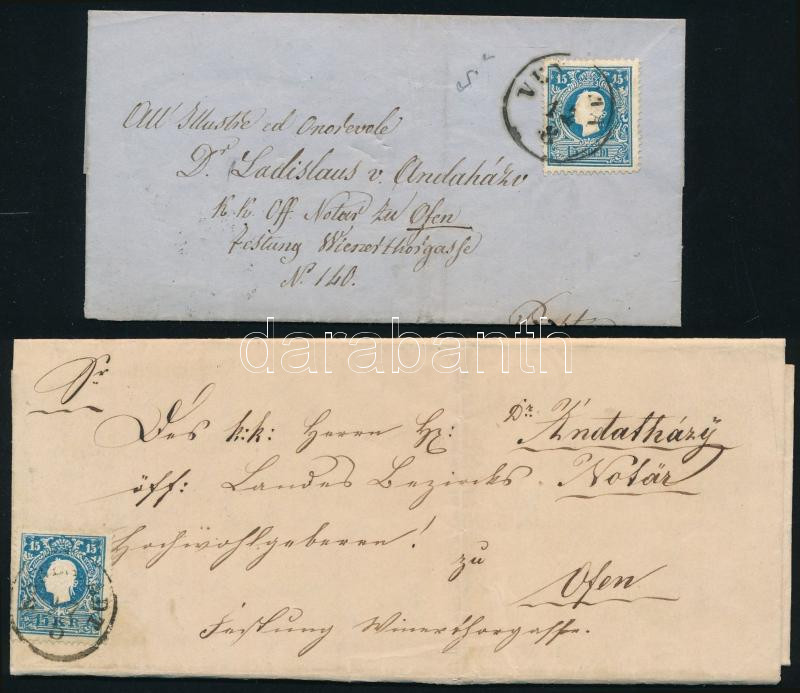 All' Illustre ed Onorevole
Dr. Ladislaus v. Andaházy
k. k. Off Notar zu Ofen
Festung Wienerthorgasse
No. 140.
15 15
darabanth
Sr
Des k: k: Herrn H: Dr. Andaházÿ
öff: Landes Bezirks Notär
Hochwohlgeboren!
zu
Ofen
Festung Winerthorgasse.
15 15
15 KR